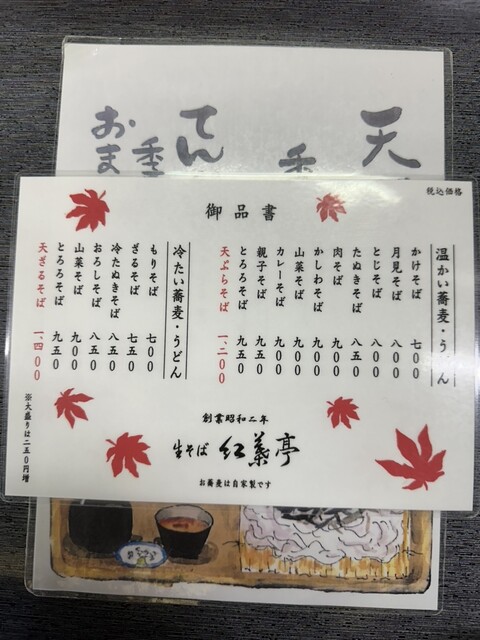 天
季
てん
季
おま
税込価格
御品書
温かい蕎麦・うどん
かけそば 七〇〇
月見そば 八〇〇
とじそば 八〇〇
たぬきそば 八五〇
肉そば 九〇〇
かしわそば 九〇〇
山菜そば 九〇〇
カレーそば 九〇〇
親子そば 九五〇
とろろそば 九五〇
天ぷらそば 一、二〇〇
冷たい蕎麦・うどん
もりそば 七〇〇
ざるそば 七五〇
冷たぬきそば 八五〇
おろしそば 八五〇
山菜そば 九〇〇
とろろそば 九五〇
天ざるそば 一、四〇〇
※大盛りは二五〇円増
創業昭和二年
生そば 紅葉亭
お蕎麦は自家製です